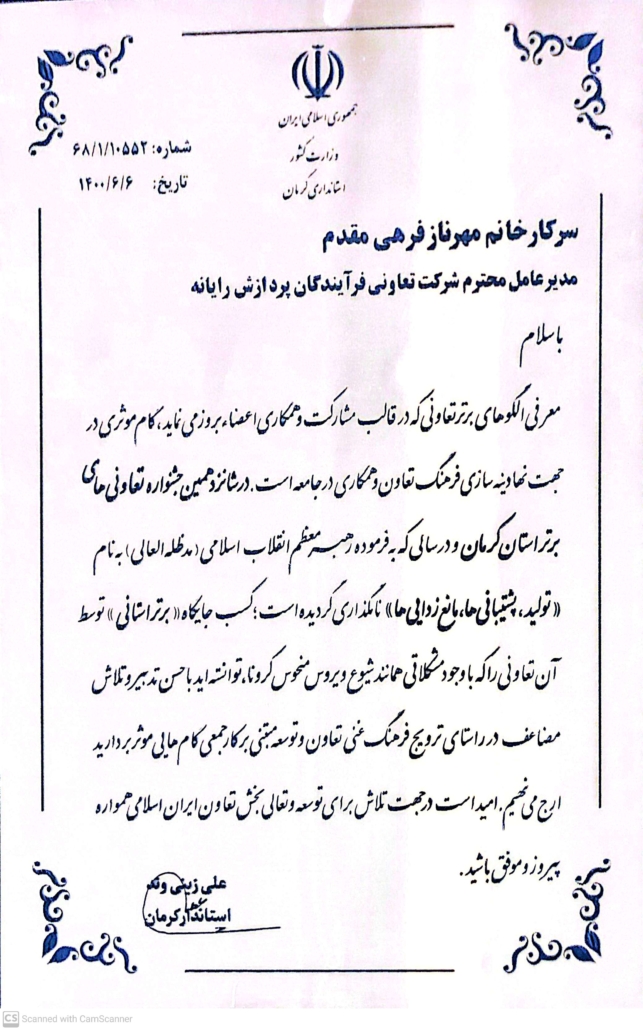 جمهوری اسلامی ایران
وزارت کشور
استانداری کرمان
شماره: ۶۸/۱/۱۰۵۵۲
تاریخ: ۱۴۰۰/۶/۶
سرکار خانم مهرناز فرهی مقدم
مدیرعامل محترم شرکت تعاونی فرآیندگان پردازش رایانه
باسلام
معرفی الگوهای برتر تعاونی که در قالب مشارکت و همکاری اعضاء بروز می نماید، گام موثری در
جهت نهادینه سازی فرهنگ تعاون و همکاری در جامعه است. در شانزدهمین جشنواره تعاونی های
برتر استان کرمان و در سالی که به فرموده رهبر معظم انقلاب اسلامی (مدظله العالی) به نام
«تولید، پشتیبانی ها، مانع زدایی ها» نامگذاری گردیده است؛ کسب جایگاه «برتر استانی» توسط
آن تعاونی را که با وجود مشکلاتی همانند شیوع ویروس منحوس کرونا، توانسته اید با حسن تدبیر و تلاش
مضاعف در راستای ترویج فرهنگ غنی تعاون و توسعه مبتنی بر کار جمعی گام هایی موثر بردارید
ارج می نهیم. امید است در جهت تلاش برای توسعه و تعالی بخش تعاون ایران اسلامی همواره
پیروز و موفق باشید.
علی زینی وند
استاندار کرمان
CS Scanned with CamScanner